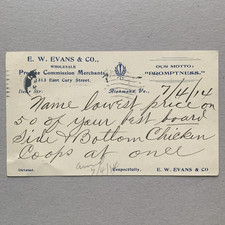 E. W. EVANS & CO.,
WHOLESALE
Produce Commission Merchants,
1313 East Cary Street.
OUR MOTTO:
"PROMPTNESS."
Dear Sir:
Richmond, Va., 7/4/14
Name lowest price on
50 of your best board
Side & Bottom Chicken
Coops at once
Respectfully,
E. W. EVANS & CO